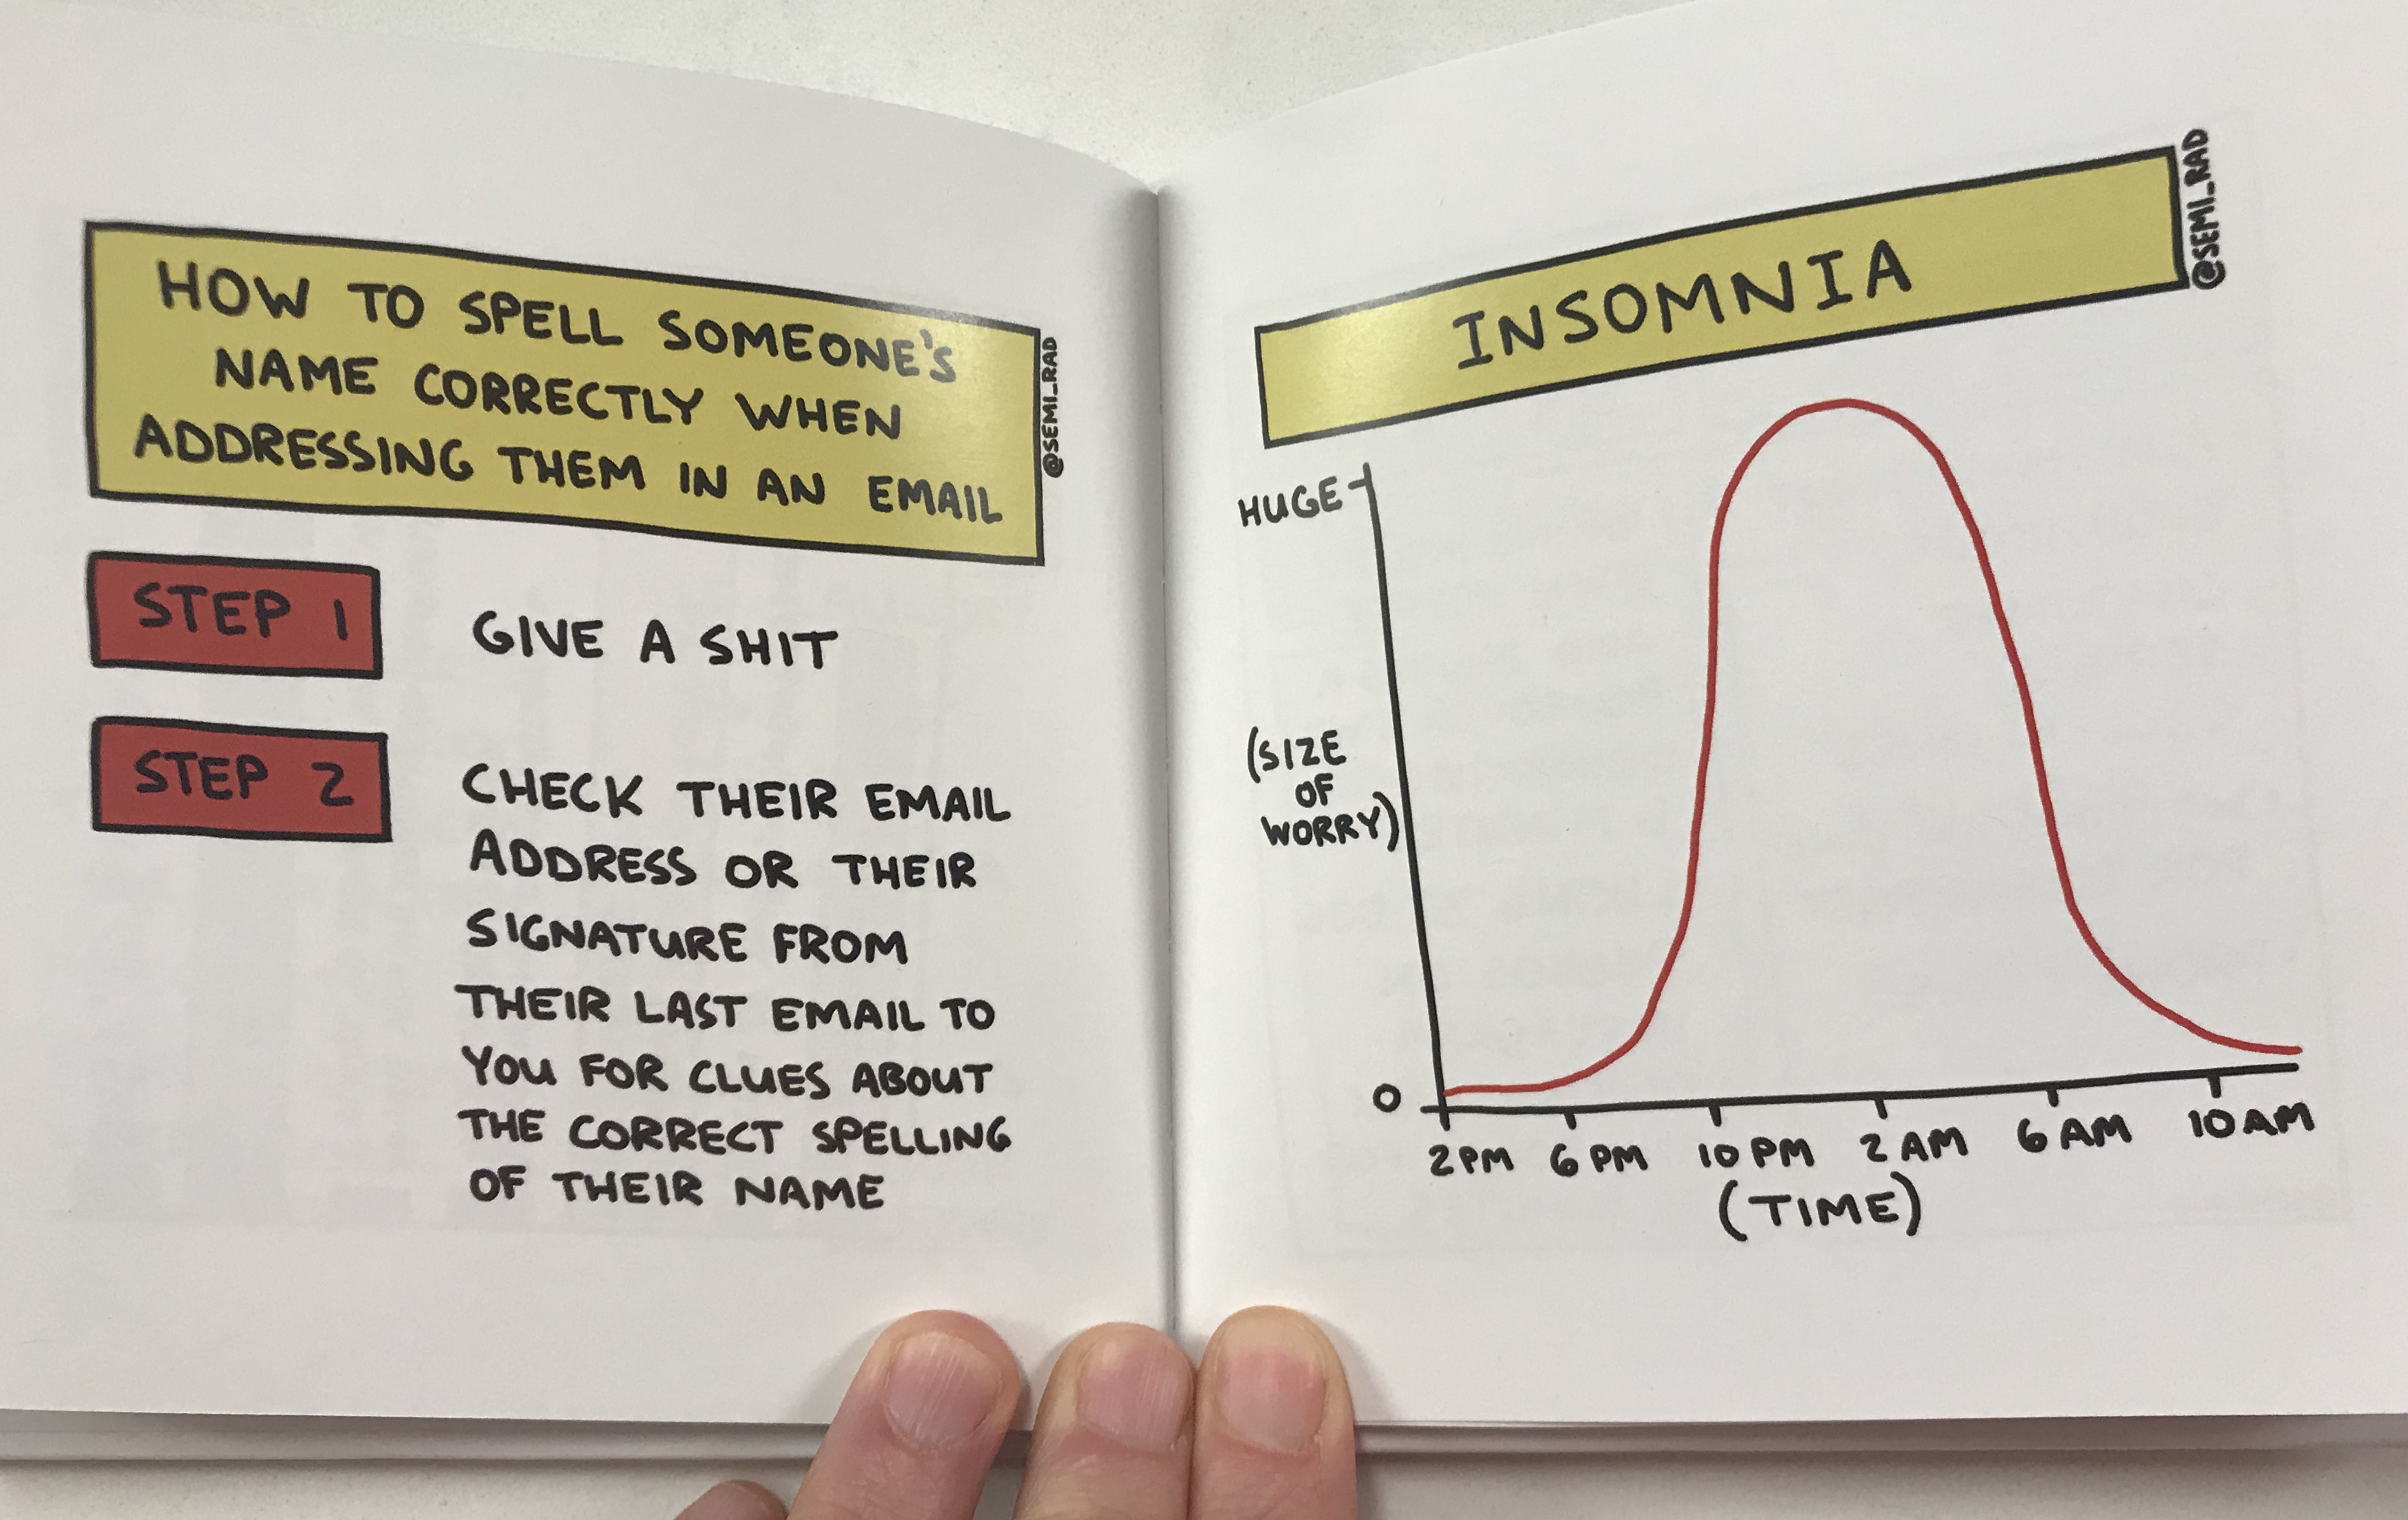 HOW TO SPELL SOMEONE'S
NAME CORRECTLY WHEN
ADDRESSING THEM IN AN EMAIL
@SEMI_RAD
STEP 1
GIVE A SHIT
STEP 2
CHECK THEIR EMAIL
ADDRESS OR THEIR
SIGNATURE FROM
THEIR LAST EMAIL TO
YOU FOR CLUES ABOUT
THE CORRECT SPELLING
OF THEIR NAME
INSOMNIA
@SEMI_RAD
HUGE
(SIZE
OF
WORRY)
0
2 PM 6 PM 10 PM 2 AM 6 AM 10 AM
(TIME)